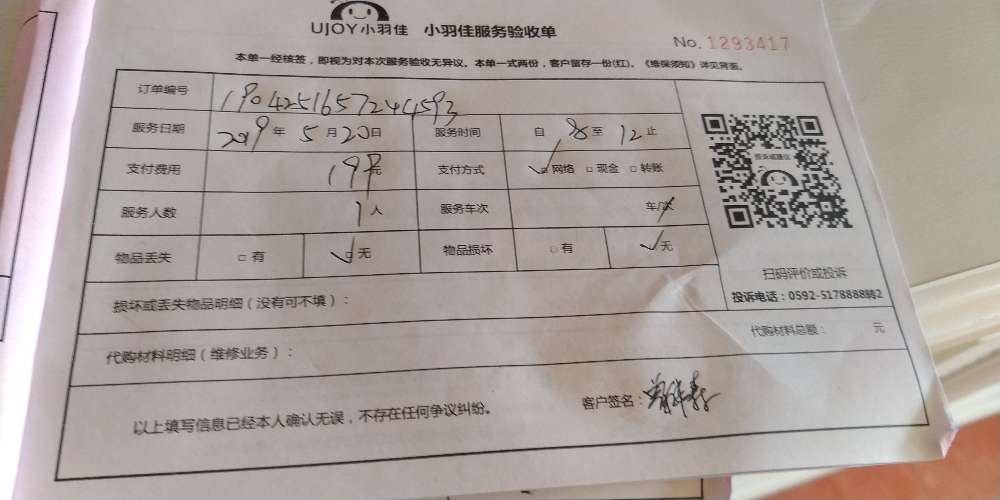 UJOY小羽佳 小羽佳服务验收单
No. 1293417
本单一经核签，即视为对本次服务验收无异议。本单一式两份，客户留存一份(红)。《维保须知》详见背面。
订单编号 1904251657244593
服务日期 2019年5月20日 服务时间 自8至12止
支付费用 198元 支付方式 网络 现金 转账
服务人数 1人 服务车次 车/次
物品丢失 有 无 物品损坏 有 无
投诉或建议
扫码评价或投诉
投诉电话：0592-5178888转2
损坏或丢失物品明细（没有可不填）：
代购材料明细（维修业务）： 代购材料总额： 元
以上填写信息已经本人确认无误，不存在任何争议纠纷。 客户签名：